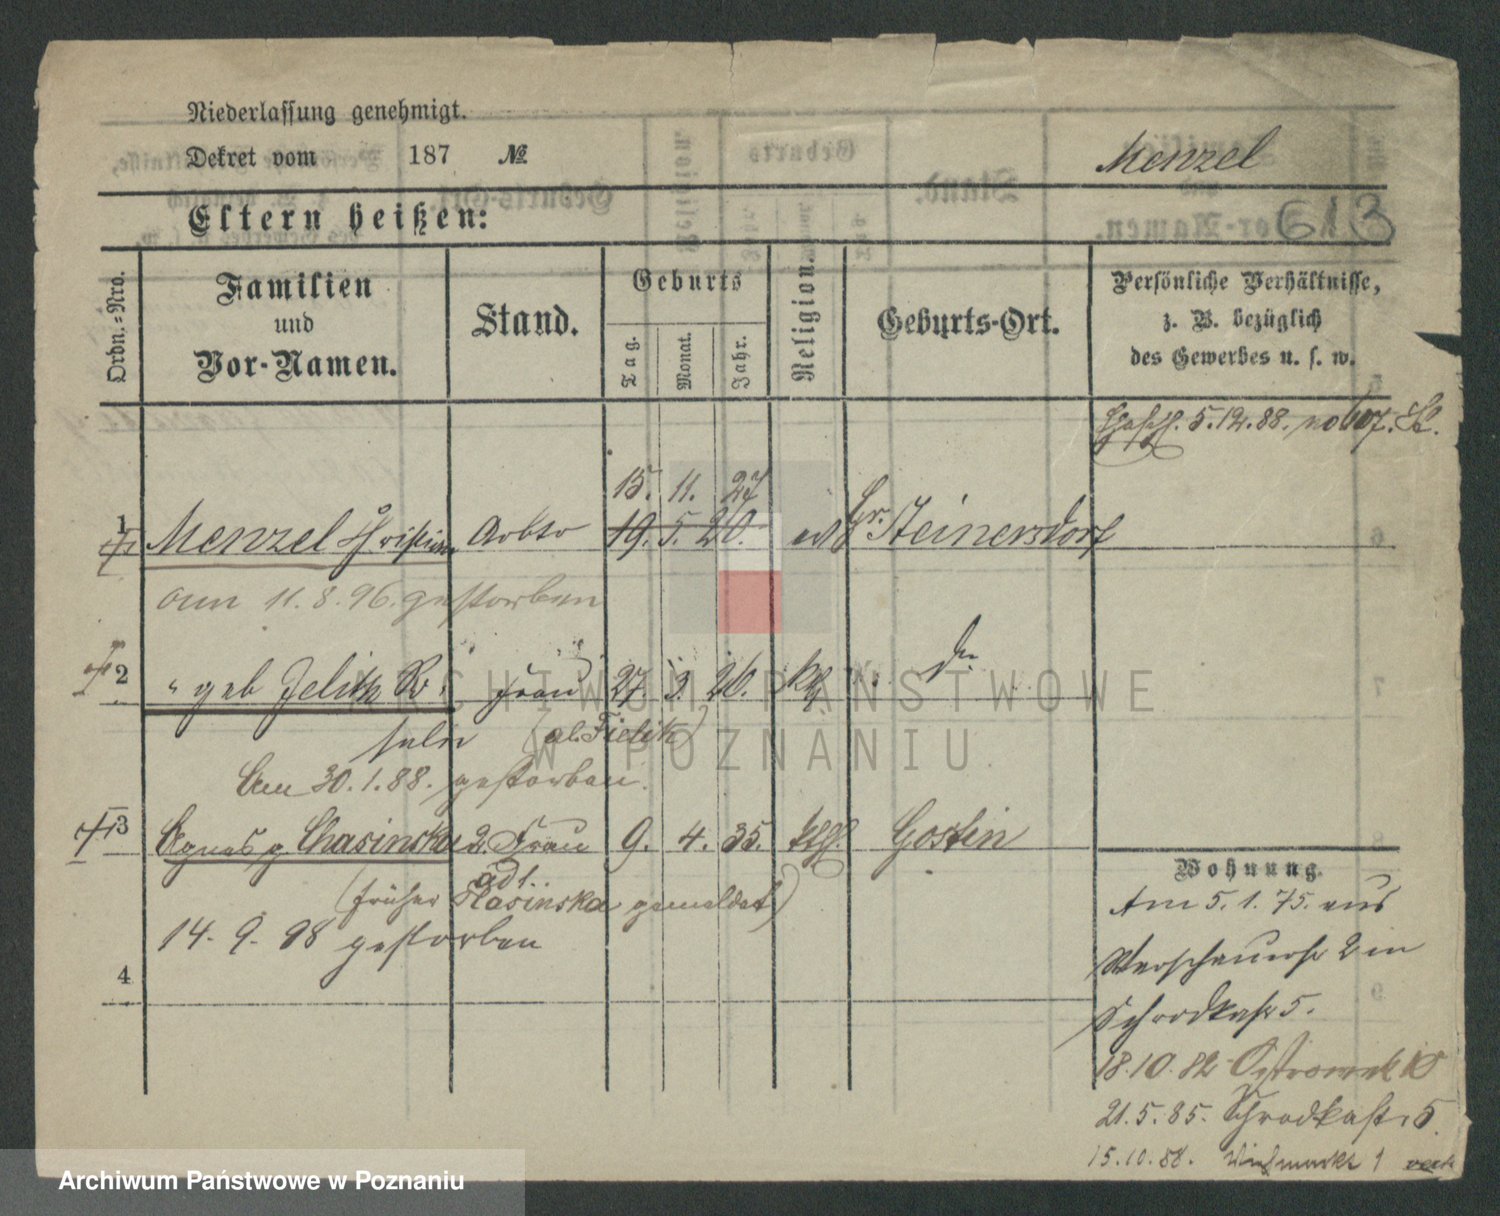 Niederlassung genehmigt.
Dekret vom 187 №
Menzel
613
Eltern heißen:
Ordn.-Nro.
Familien und Vor-Namen.
Stand.
Geburts
Tag.
Monat.
Jahr.
Religion.
Geburts-Ort.
Persönliche Verhältnisse,
z. B. bezüglich
des Gewerbes u. s. w.
5.12.88. no 607.
15. 11. 27
1 Menzel Christian Arbtr 19. 5. 20. ev Gr. Steinersdorf
am 11.8.96. gestorben
2 " geb Jelith Ro Frau 27. 3. 26. do
(al. Fielitz)
Am 30.1.88. gestorben.
3 Agnes g. Chasinska 2. Frau 9. 4. 35. kth. Gostin
adl.
(früher Klasinska gemeldet)
14. 9. 98 gestorben
4
Wohnung.
Am 5.1.75. aus
Warschauerstr 2 in
Schrodkastr 5.
18.10.82 Ostrowek 10
21.5.85. Schrodkastr. 5.
15.10.88. Viehmarkt 1
ARCHIWUM PAŃSTWOWE
W POZNANIU
Archiwum Państwowe w Poznaniu